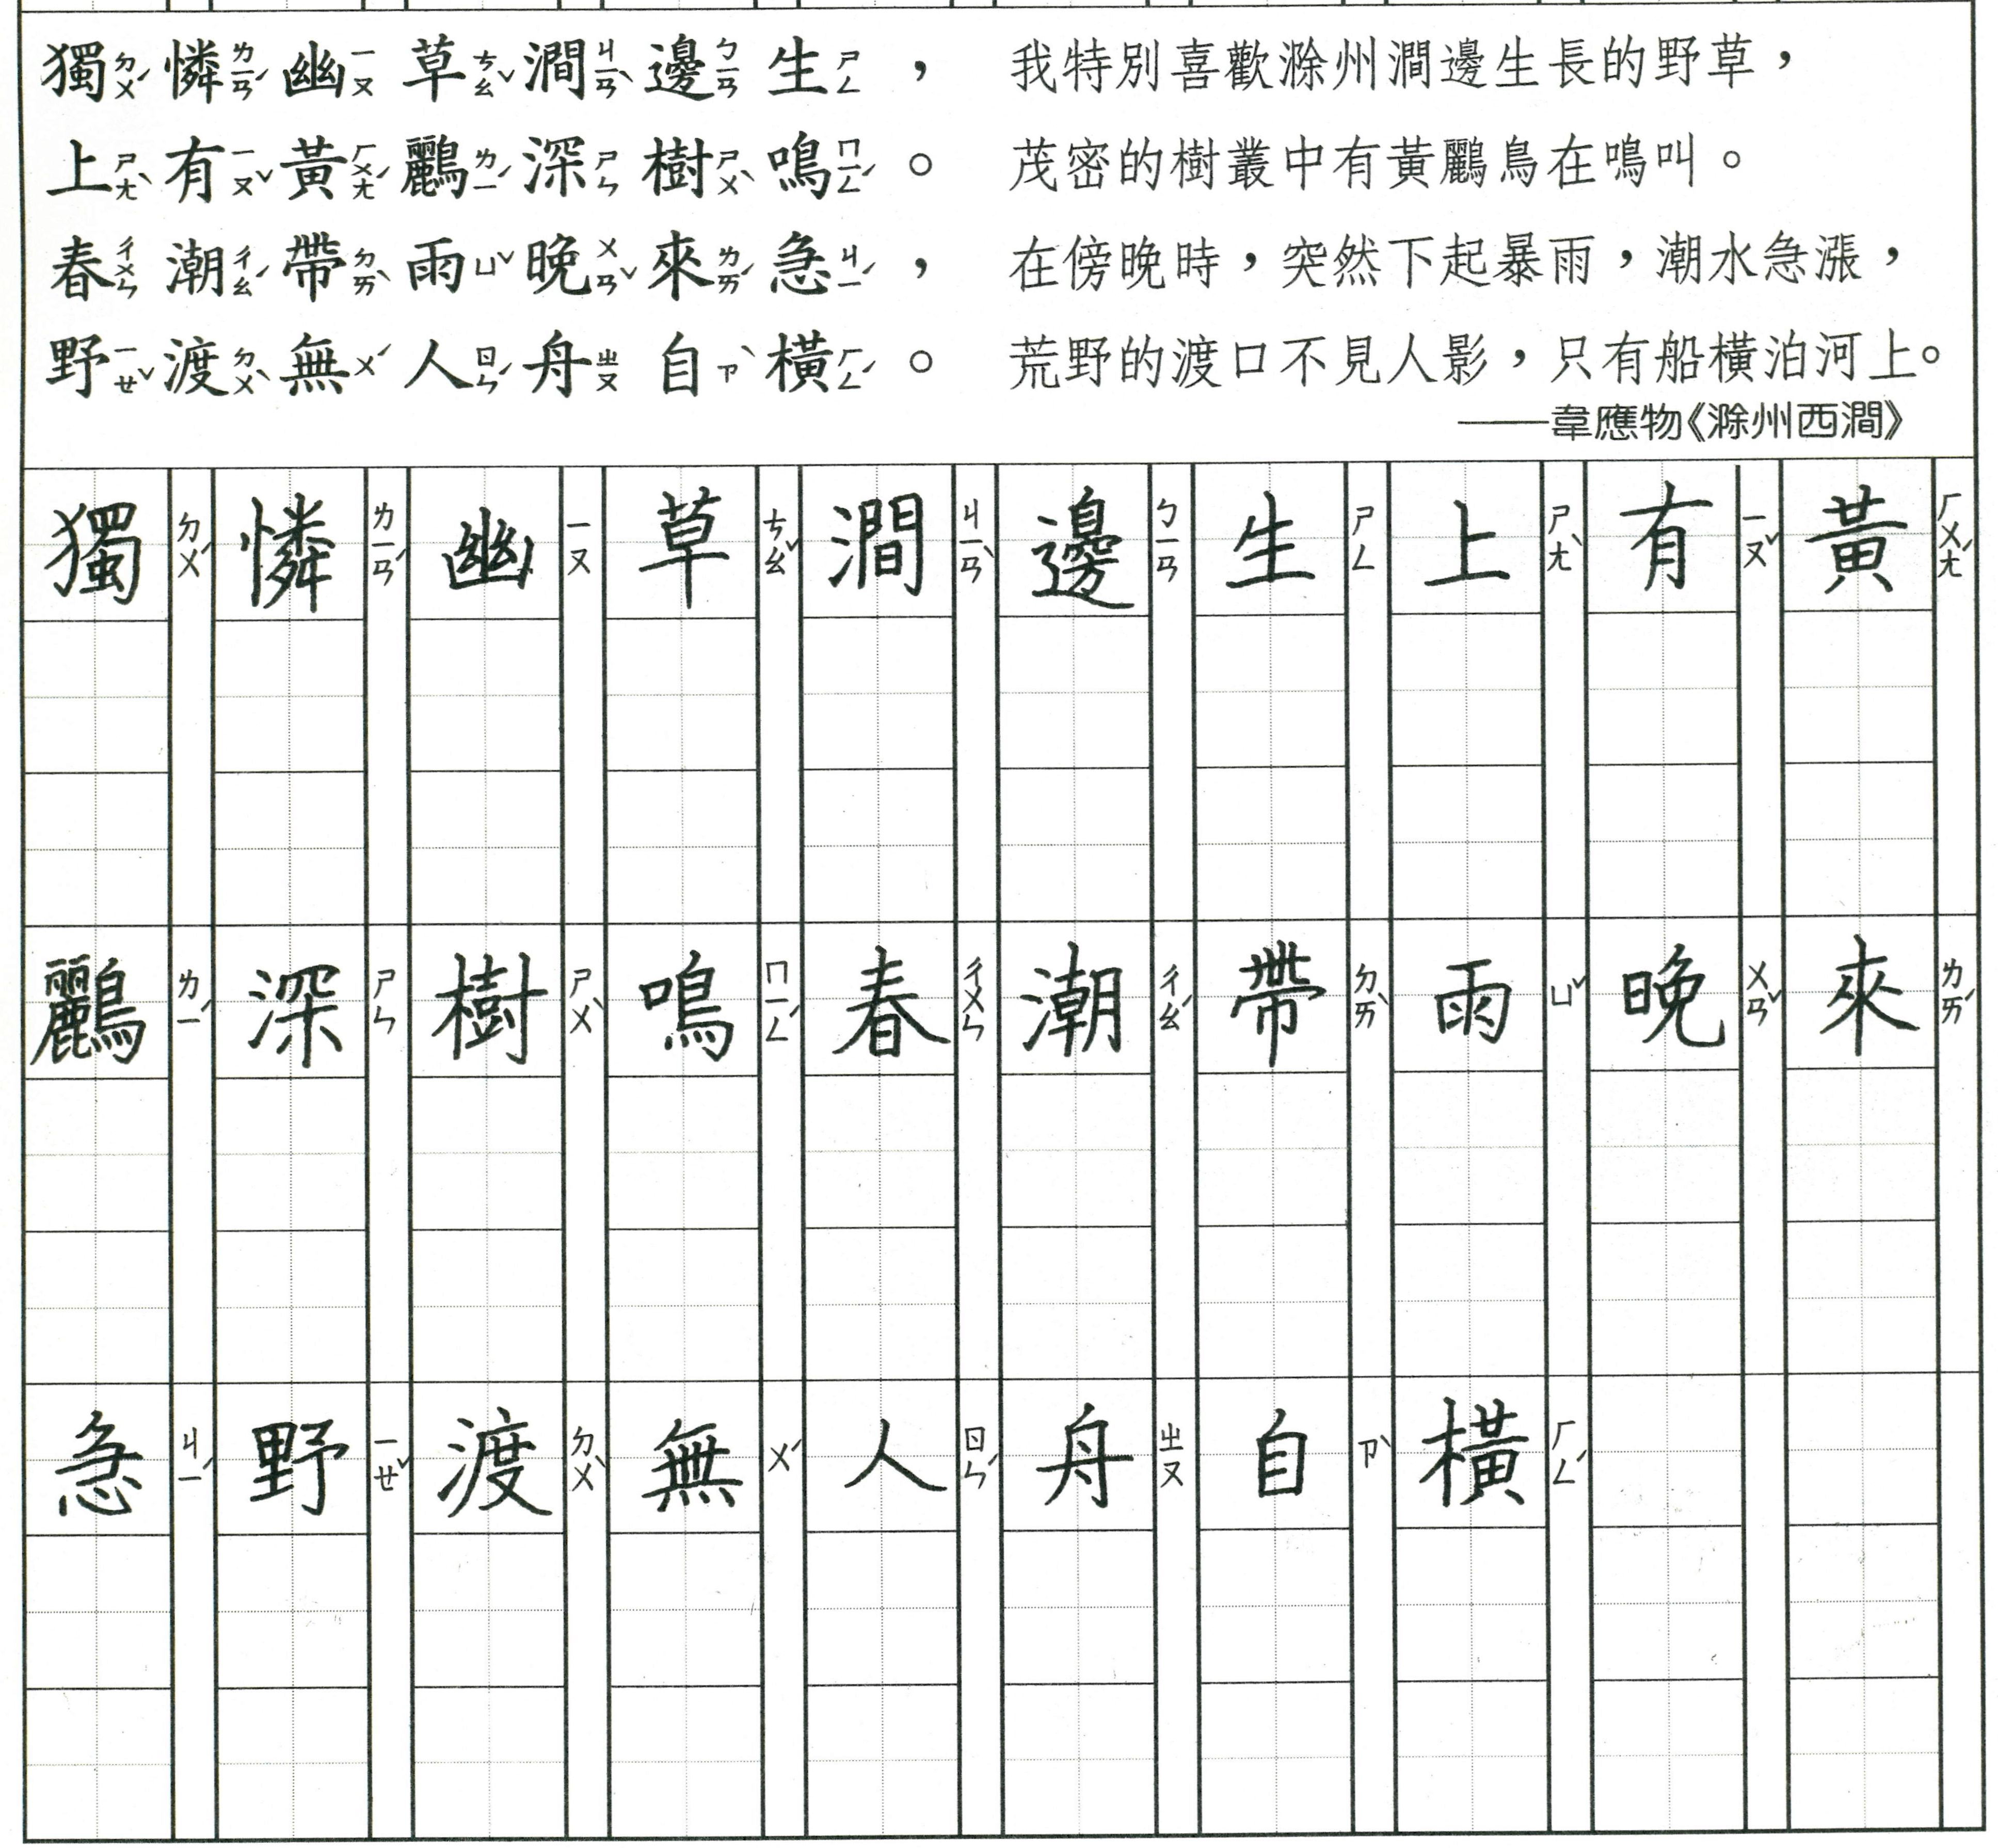 獨ㄉㄨˊ憐ㄌㄧㄢˊ幽ㄧㄡ草ㄘㄠˇ澗ㄐㄧㄢˋ邊ㄅㄧㄢ生ㄕㄥ， 我特別喜歡滁州澗邊生長的野草，
上ㄕㄤˋ有ㄧㄡˇ黃ㄏㄨㄤˊ鸝ㄌㄧˊ深ㄕㄣ樹ㄕㄨˋ鳴ㄇㄧㄥˊ。 茂密的樹叢中有黃鸝鳥在鳴叫。
春ㄔㄨㄣ潮ㄔㄠˊ帶ㄉㄞˋ雨ㄩˇ晚ㄨㄢˇ來ㄌㄞˊ急ㄐㄧˊ， 在傍晚時，突然下起暴雨，潮水急漲，
野ㄧㄝˇ渡ㄉㄨˋ無ㄨˊ人ㄖㄣˊ舟ㄓㄡ自ㄗˋ橫ㄏㄥˊ。 荒野的渡口不見人影，只有船橫泊河上。
——韋應物《滁州西澗》
獨ㄉㄨˊ憐ㄌㄧㄢˊ幽ㄧㄡ草ㄘㄠˇ澗ㄐㄧㄢˋ邊ㄅㄧㄢ生ㄕㄥ上ㄕㄤˋ有ㄧㄡˇ黃ㄏㄨㄤˊ
鸝ㄌㄧˊ深ㄕㄣ樹ㄕㄨˋ鳴ㄇㄧㄥˊ春ㄔㄨㄣ潮ㄔㄠˊ帶ㄉㄞˋ雨ㄩˇ晚ㄨㄢˇ來ㄌㄞˊ
急ㄐㄧˊ野ㄧㄝˇ渡ㄉㄨˋ無ㄨˊ人ㄖㄣˊ舟ㄓㄡ自ㄗˋ橫ㄏㄥˊ